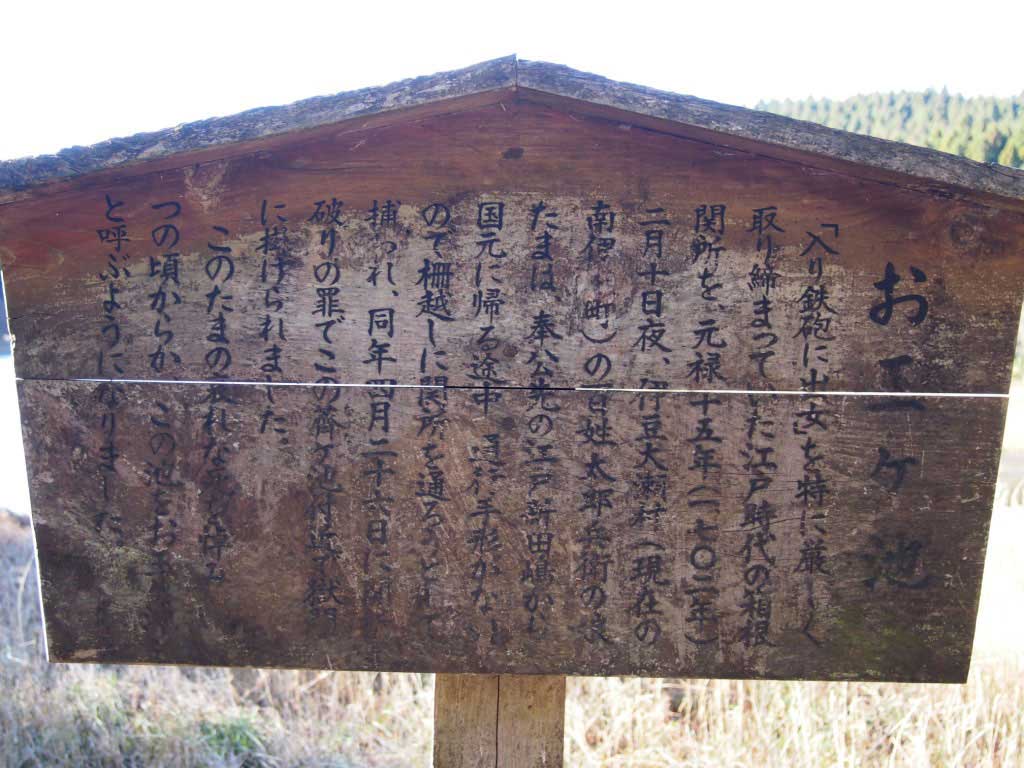 お玉ヶ池
「入り鉄砲に出女」を特に厳しく
取り締まっていた江戸時代の箱根
関所を、元禄十五年(一七〇二年)
二月十日夜、伊豆大瀬村(現在の
南伊 町)の百姓太郎兵衛の娘
たまは、奉公先の江戸新田嶋から
国元に帰る途中、通行手形がない
ので柵越しに関所を通ろうとして
捕われ、同年四月二十六日に関所
破りの罪でこの薺ケ池付近で獄門
に掛けられました。
このたまの哀れな を悼み
つの頃からか、この池をお玉
と呼ぶようになりました